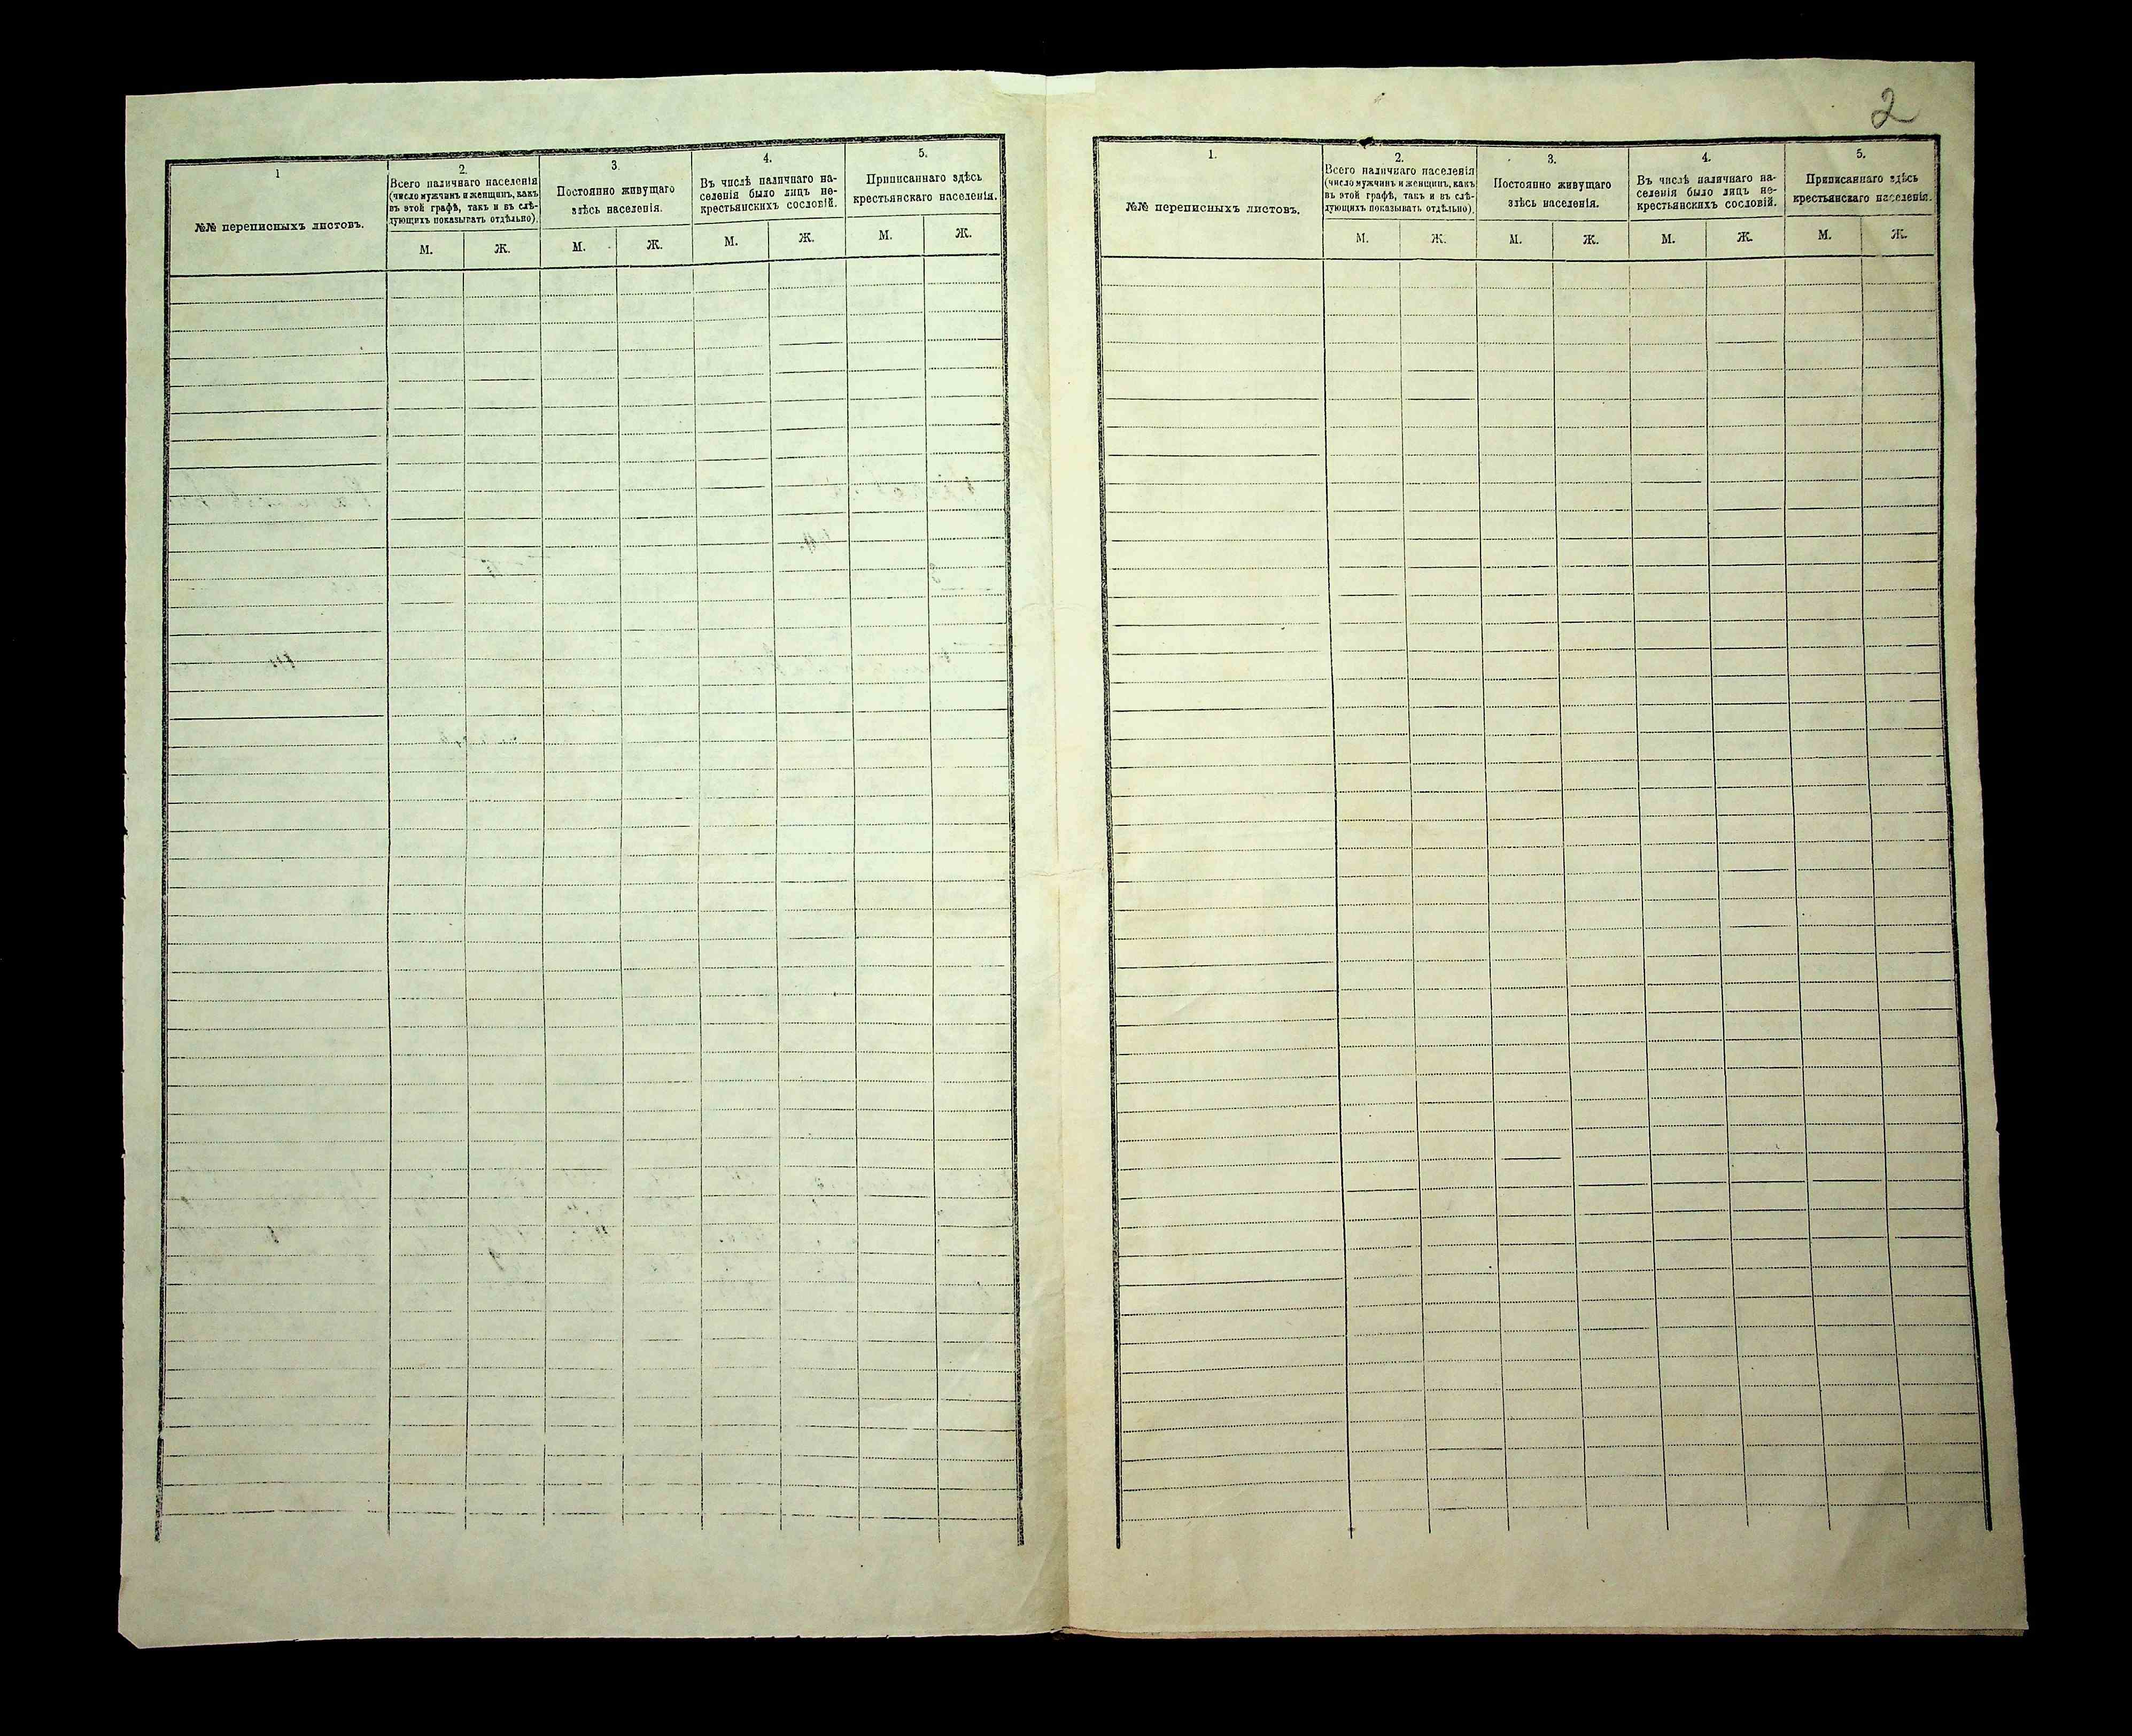 1
№№ переписныхъ листовъ.
2.
Всего наличнаго населенія
(число мужчинъ и женщинъ, какъ
въ этой графѣ, такъ и въ слѣ-
дующихъ показывать отдѣльно).
М. Ж.
3.
Постоянно живущаго
здѣсь населенія.
М. Ж.
4.
Въ числѣ наличнаго на-
селенія было лицъ не-
крестьянскихъ сословій.
М. Ж.
5.
Приписаннаго здѣсь
крестьянскаго населенія.
М. Ж.
2
1.
№№ переписныхъ листовъ.
2.
Всего наличнаго населенія
(число мужчинъ и женщинъ, какъ
въ этой графѣ, такъ и въ слѣ-
дующихъ показывать отдѣльно).
М. Ж.
3.
Постоянно живущаго
здѣсь населенія.
М. Ж.
4.
Въ числѣ наличнаго на-
селенія было лицъ не-
крестьянскихъ сословій.
М. Ж.
5.
Приписаннаго здѣсь
крестьянскаго населенія.
М. Ж.